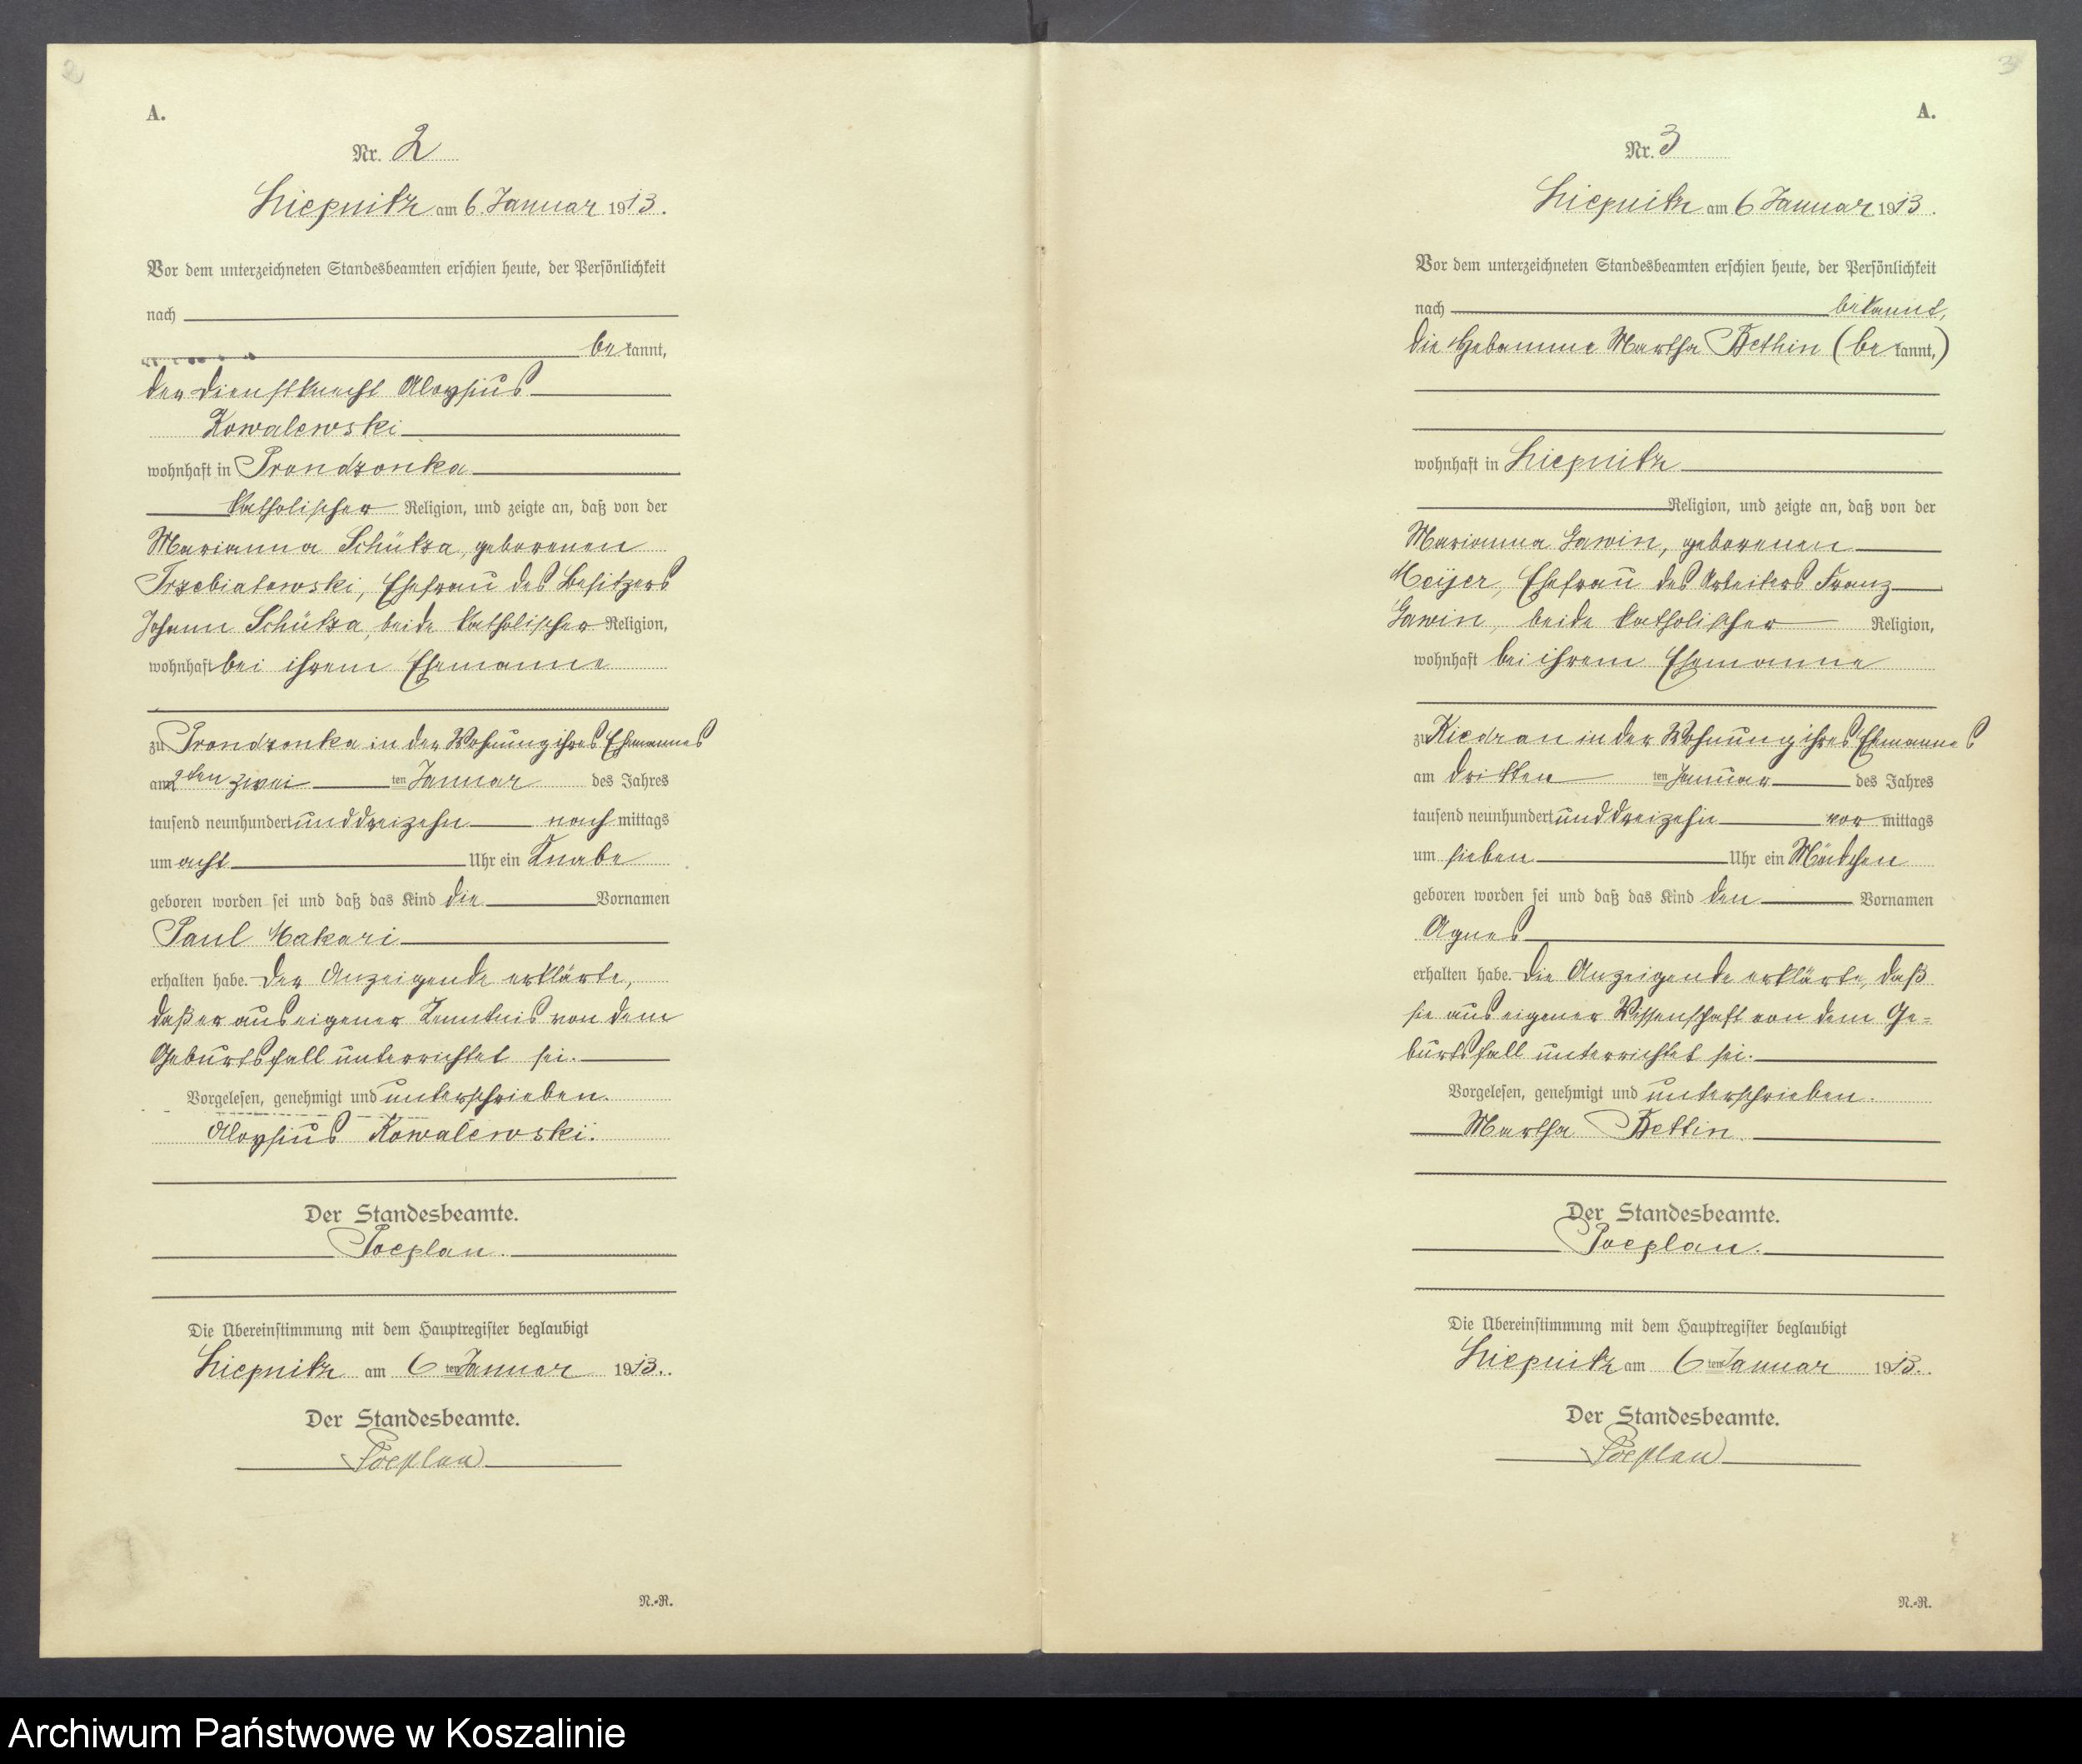 2
A.
Nr. 2
Liepnitz am 6. Januar 1913.
Vor dem unterzeichneten Standesbeamten erschien heute, der Persönlichkeit
nach
bekannt,
der Dienstknecht Aloysius
Kowalewski
wohnhaft in Prondzonka
katholischer Religion, und zeigte an, daß von der
Marianna Schütza, geborenen
Trzebiatowski, Ehefrau des Besitzers
Johann Schütza, beide katholischer Religion,
wohnhaft bei ihrem Ehemanne
zu Prondzonka in der Wohnung ihres Ehemannes
am 2ten zwei ten Januar des Jahres
tausend neunhundert unddreizehn nach mittags
um acht Uhr ein Knabe
geboren worden sei und daß das Kind die Vornamen
Paul Makari
erhalten habe. Der Anzeigende erklärte,
daß er aus eigener Kenntnis von dem
Geburtsfall unterrichtet sei.
Vorgelesen, genehmigt und unterschrieben.
Aloysius Kowalewski.
Der Standesbeamte.
Poeplau.
Die Übereinstimmung mit dem Hauptregister beglaubigt
Liepnitz am 6 ten Januar 1913.
Der Standesbeamte.
Poeplau
N.-R.
3
A.
Nr. 3
Liepnitz am 6 Januar 1913.
Vor dem unterzeichneten Standesbeamten erschien heute, der Persönlichkeit
nach bekannt,
die Hebamme Martha Bethin (bekannt,)
wohnhaft in Liepnitz
Religion, und zeigte an, daß von der
Marianna Gawin, geborenen
Meyer, Ehefrau des Arbeiters Franz
Gawin, beide katholischer Religion,
wohnhaft bei ihrem Ehemanne
zu Kiedran in der Wohnung ihres Ehemannes
am dritten ten Januar des Jahres
tausend neunhundert unddreizehn vor mittags
um sieben Uhr ein Mädchen
geboren worden sei und daß das Kind den Vornamen
Agnes
erhalten habe. Die Anzeigende erklärte, daß
sie aus eigener Wissenschaft von dem Ge=
burtsfall unterrichtet sei.
Vorgelesen, genehmigt und unterschrieben.
Martha Bettin.
Der Standesbeamte.
Poeplau.
Die Übereinstimmung mit dem Hauptregister beglaubigt
Liepnitz am 6 ten Januar 1913.
Der Standesbeamte.
Poeplau
N.-R.
Archiwum Państwowe w Koszalinie